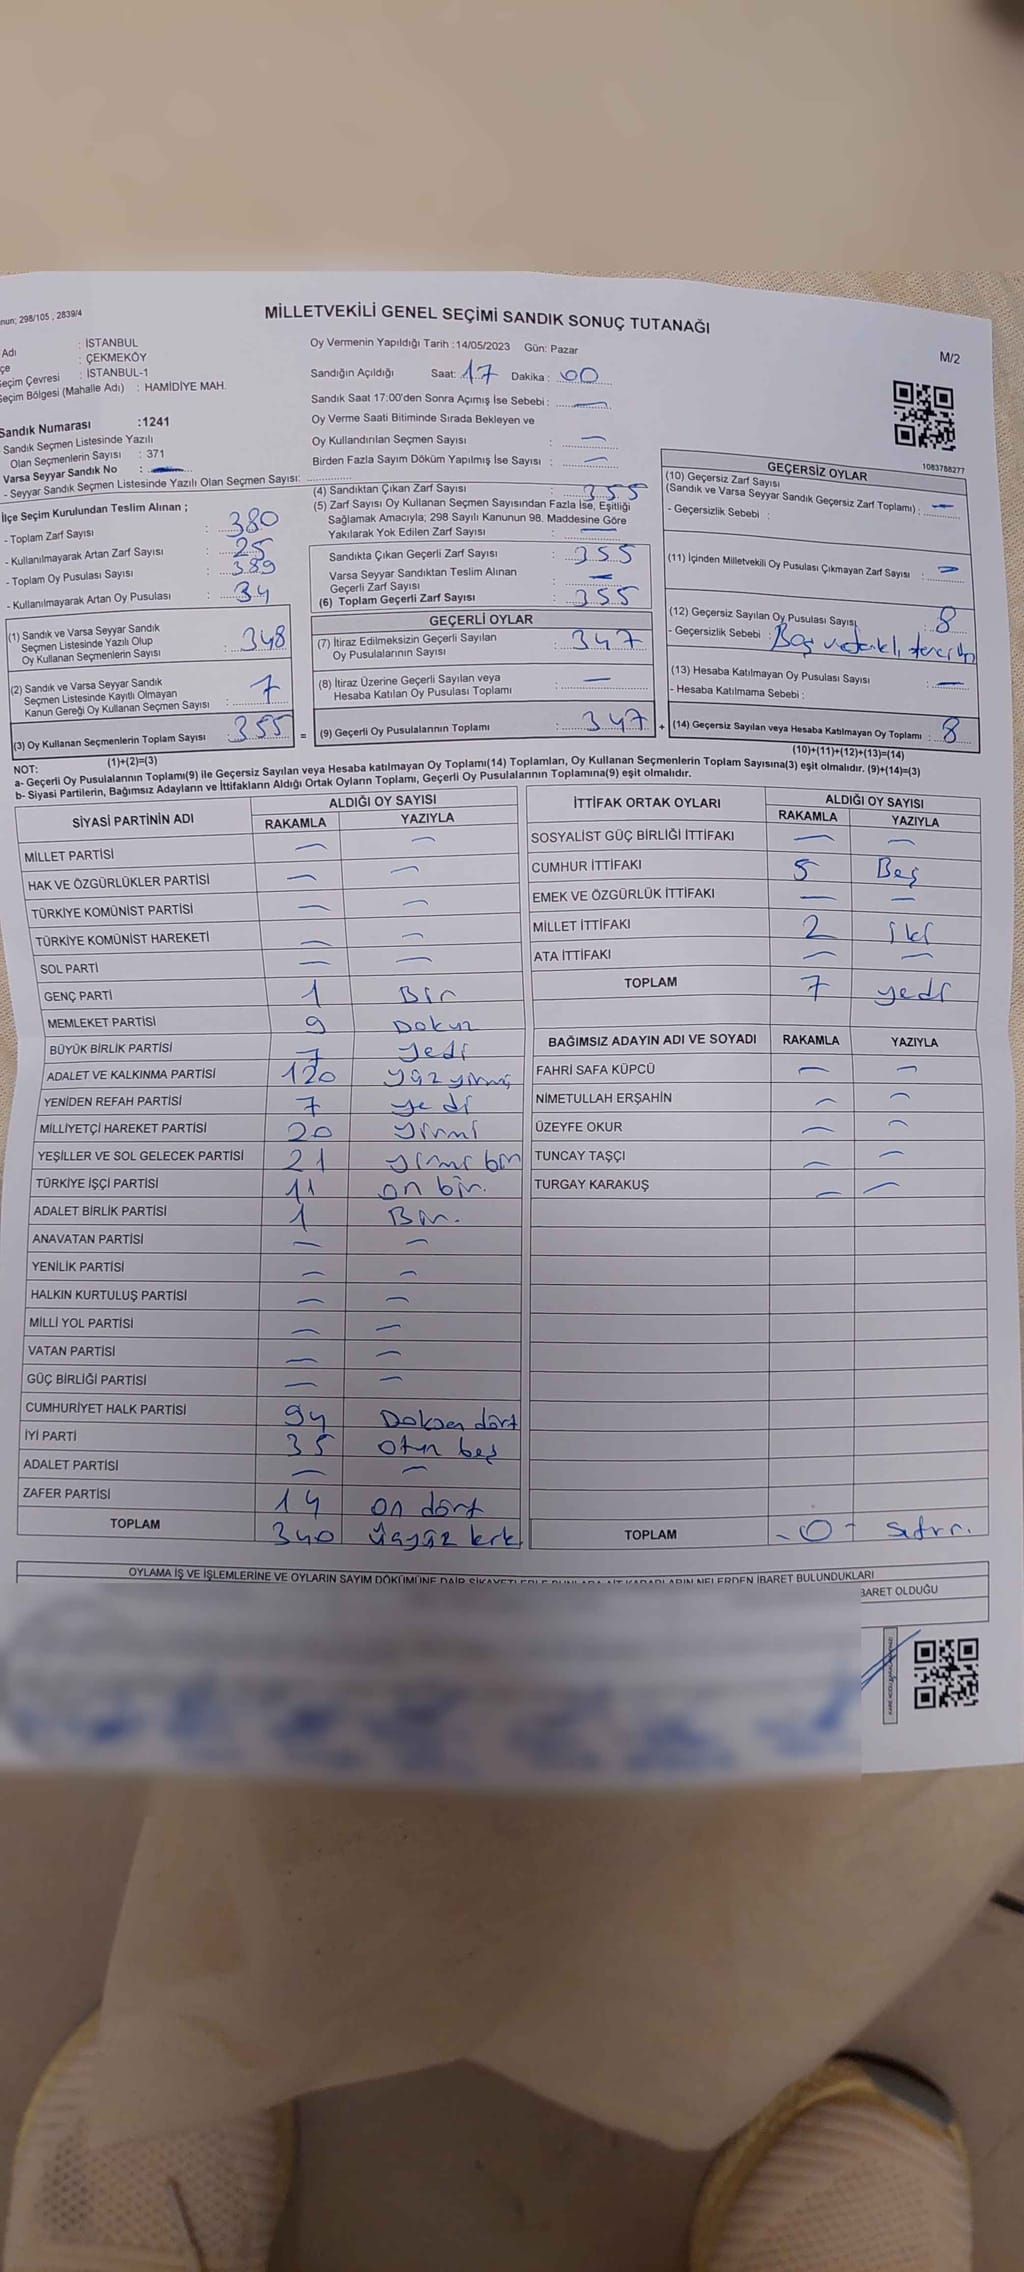 298/105 , 2839/4
MİLLETVEKİLİ GENEL SEÇİMİ SANDIK SONUÇ TUTANAĞI
M/2
Adı : İSTANBUL
: ÇEKMEKÖY
Seçim Çevresi : İSTANBUL-1
Seçim Bölgesi (Mahalle Adı) : HAMİDİYE MAH.
Sandık Numarası :1241
Sandık Seçmen Listesinde Yazılı
Olan Seçmenlerin Sayısı : 371
Varsa Seyyar Sandık No : —
- Seyyar Sandık Seçmen Listesinde Yazılı Olan Seçmen Sayısı:
Oy Vermenin Yapıldığı Tarih :14/05/2023 Gün: Pazar
Sandığın Açıldığı Saat: 17 Dakika : 00
Sandık Saat 17:00'den Sonra Açımış İse Sebebi : —
Oy Verme Saati Bitiminde Sırada Bekleyen ve
Oy Kullandırılan Seçmen Sayısı : —
Birden Fazla Sayım Döküm Yapılmış İse Sayısı : —
1083788277
İlçe Seçim Kurulundan Teslim Alınan ;
- Toplam Zarf Sayısı : 380
- Kullanılmayarak Artan Zarf Sayısı : 25
- Toplam Oy Pusulası Sayısı : 389
- Kullanılmayarak Artan Oy Pusulası : 34
(1) Sandık ve Varsa Seyyar Sandık
Seçmen Listesinde Yazılı Olup
Oy Kullanan Seçmenlerin Sayısı : 348
(2) Sandık ve Varsa Seyyar Sandık
Seçmen Listesinde Kayıtlı Olmayan
Kanun Gereği Oy Kullanan Seçmen Sayısı : 7
(3) Oy Kullanan Seçmenlerin Toplam Sayısı : 355
(1)+(2)=(3)
(4) Sandıktan Çıkan Zarf Sayısı : 355
(5) Zarf Sayısı Oy Kullanan Seçmen Sayısından Fazla İse, Eşitliği
Sağlamak Amacıyla; 298 Sayılı Kanunun 98. Maddesine Göre
Yakılarak Yok Edilen Zarf Sayısı : —
Sandıkta Çıkan Geçerli Zarf Sayısı : 355
Varsa Seyyar Sandıktan Teslim Alınan
Geçerli Zarf Sayısı : —
(6) Toplam Geçerli Zarf Sayısı : 355
GEÇERLİ OYLAR
(7) İtiraz Edilmeksizin Geçerli Sayılan
Oy Pusulalarının Sayısı : 347
(8) İtiraz Üzerine Geçerli Sayılan veya
Hesaba Katılan Oy Pusulası Toplamı : —
= (9) Geçerli Oy Pusulalarının Toplamı : 347 +
GEÇERSİZ OYLAR
(10) Geçersiz Zarf Sayısı
(Sandık ve Varsa Seyyar Sandık Geçersiz Zarf Toplamı) : —
- Geçersizlik Sebebi :
(11) İçinden Milletvekili Oy Pusulası Çıkmayan Zarf Sayısı : —
(12) Geçersiz Sayılan Oy Pusulası Sayısı : 8
- Geçersizlik Sebebi : Boş
(13) Hesaba Katılmayan Oy Pusulası Sayısı : —
- Hesaba Katılmama Sebebi :
(14) Geçersiz Sayılan veya Hesaba Katılmayan Oy Toplamı : 8
(10)+(11)+(12)+(13)=(14)
NOT:
a- Geçerli Oy Pusulalarının Toplamı(9) ile Geçersiz Sayılan veya Hesaba katılmayan Oy Toplamı(14) Toplamları, Oy Kullanan Seçmenlerin Toplam Sayısına(3) eşit olmalıdır. (9)+(14)=(3)
b- Siyasi Partilerin, Bağımsız Adayların ve İttifakların Aldığı Ortak Oyların Toplamı, Geçerli Oy Pusulalarının Toplamına(9) eşit olmalıdır.
SİYASİ PARTİNİN ADI ALDIĞI OY SAYISI
RAKAMLA YAZIYLA
MİLLET PARTİSİ — —
HAK VE ÖZGÜRLÜKLER PARTİSİ — —
TÜRKİYE KOMÜNİST PARTİSİ — —
TÜRKİYE KOMÜNİST HAREKETİ — —
SOL PARTİ — —
GENÇ PARTİ 1 Bir
MEMLEKET PARTİSİ 9 Dokuz
BÜYÜK BİRLİK PARTİSİ 7 yedi
ADALET VE KALKINMA PARTİSİ 120 yüz yirmi
YENİDEN REFAH PARTİSİ 7 yedi
MİLLİYETÇİ HAREKET PARTİSİ 20 yirmi
YEŞİLLER VE SOL GELECEK PARTİSİ 21 yirmi bir
TÜRKİYE İŞÇİ PARTİSİ 11 on bir.
ADALET BİRLİK PARTİSİ 1 Bir.
ANAVATAN PARTİSİ — —
YENİLİK PARTİSİ — —
HALKIN KURTULUŞ PARTİSİ — —
MİLLİ YOL PARTİSİ — —
VATAN PARTİSİ — —
GÜÇ BİRLİĞİ PARTİSİ — —
CUMHURİYET HALK PARTİSİ 94 Doksan dört
İYİ PARTİ 35 otuz beş
ADALET PARTİSİ — —
ZAFER PARTİSİ 14 on dört
TOPLAM 340 üçyüz kırk
İTTİFAK ORTAK OYLARI ALDIĞI OY SAYISI
RAKAMLA YAZIYLA
SOSYALİST GÜÇ BİRLİĞİ İTTİFAKI — —
CUMHUR İTTİFAKI 5 Beş
EMEK VE ÖZGÜRLÜK İTTİFAKI — —
MİLLET İTTİFAKI 2 iki
ATA İTTİFAKI — —
TOPLAM 7 yedi
BAĞIMSIZ ADAYIN ADI VE SOYADI RAKAMLA YAZIYLA
FAHRİ SAFA KÜPCÜ — —
NİMETULLAH ERŞAHİN — —
ÜZEYFE OKUR — —
TUNCAY TAŞÇI — —
TURGAY KARAKUŞ — —
TOPLAM -0- sıfır.
OYLAMA İŞ VE İŞLEMLERİNE VE OYLARIN SAYIM DÖKÜMÜNE DAİR NELERDEN İBARET BULUNDUKLARI
OLDUĞU